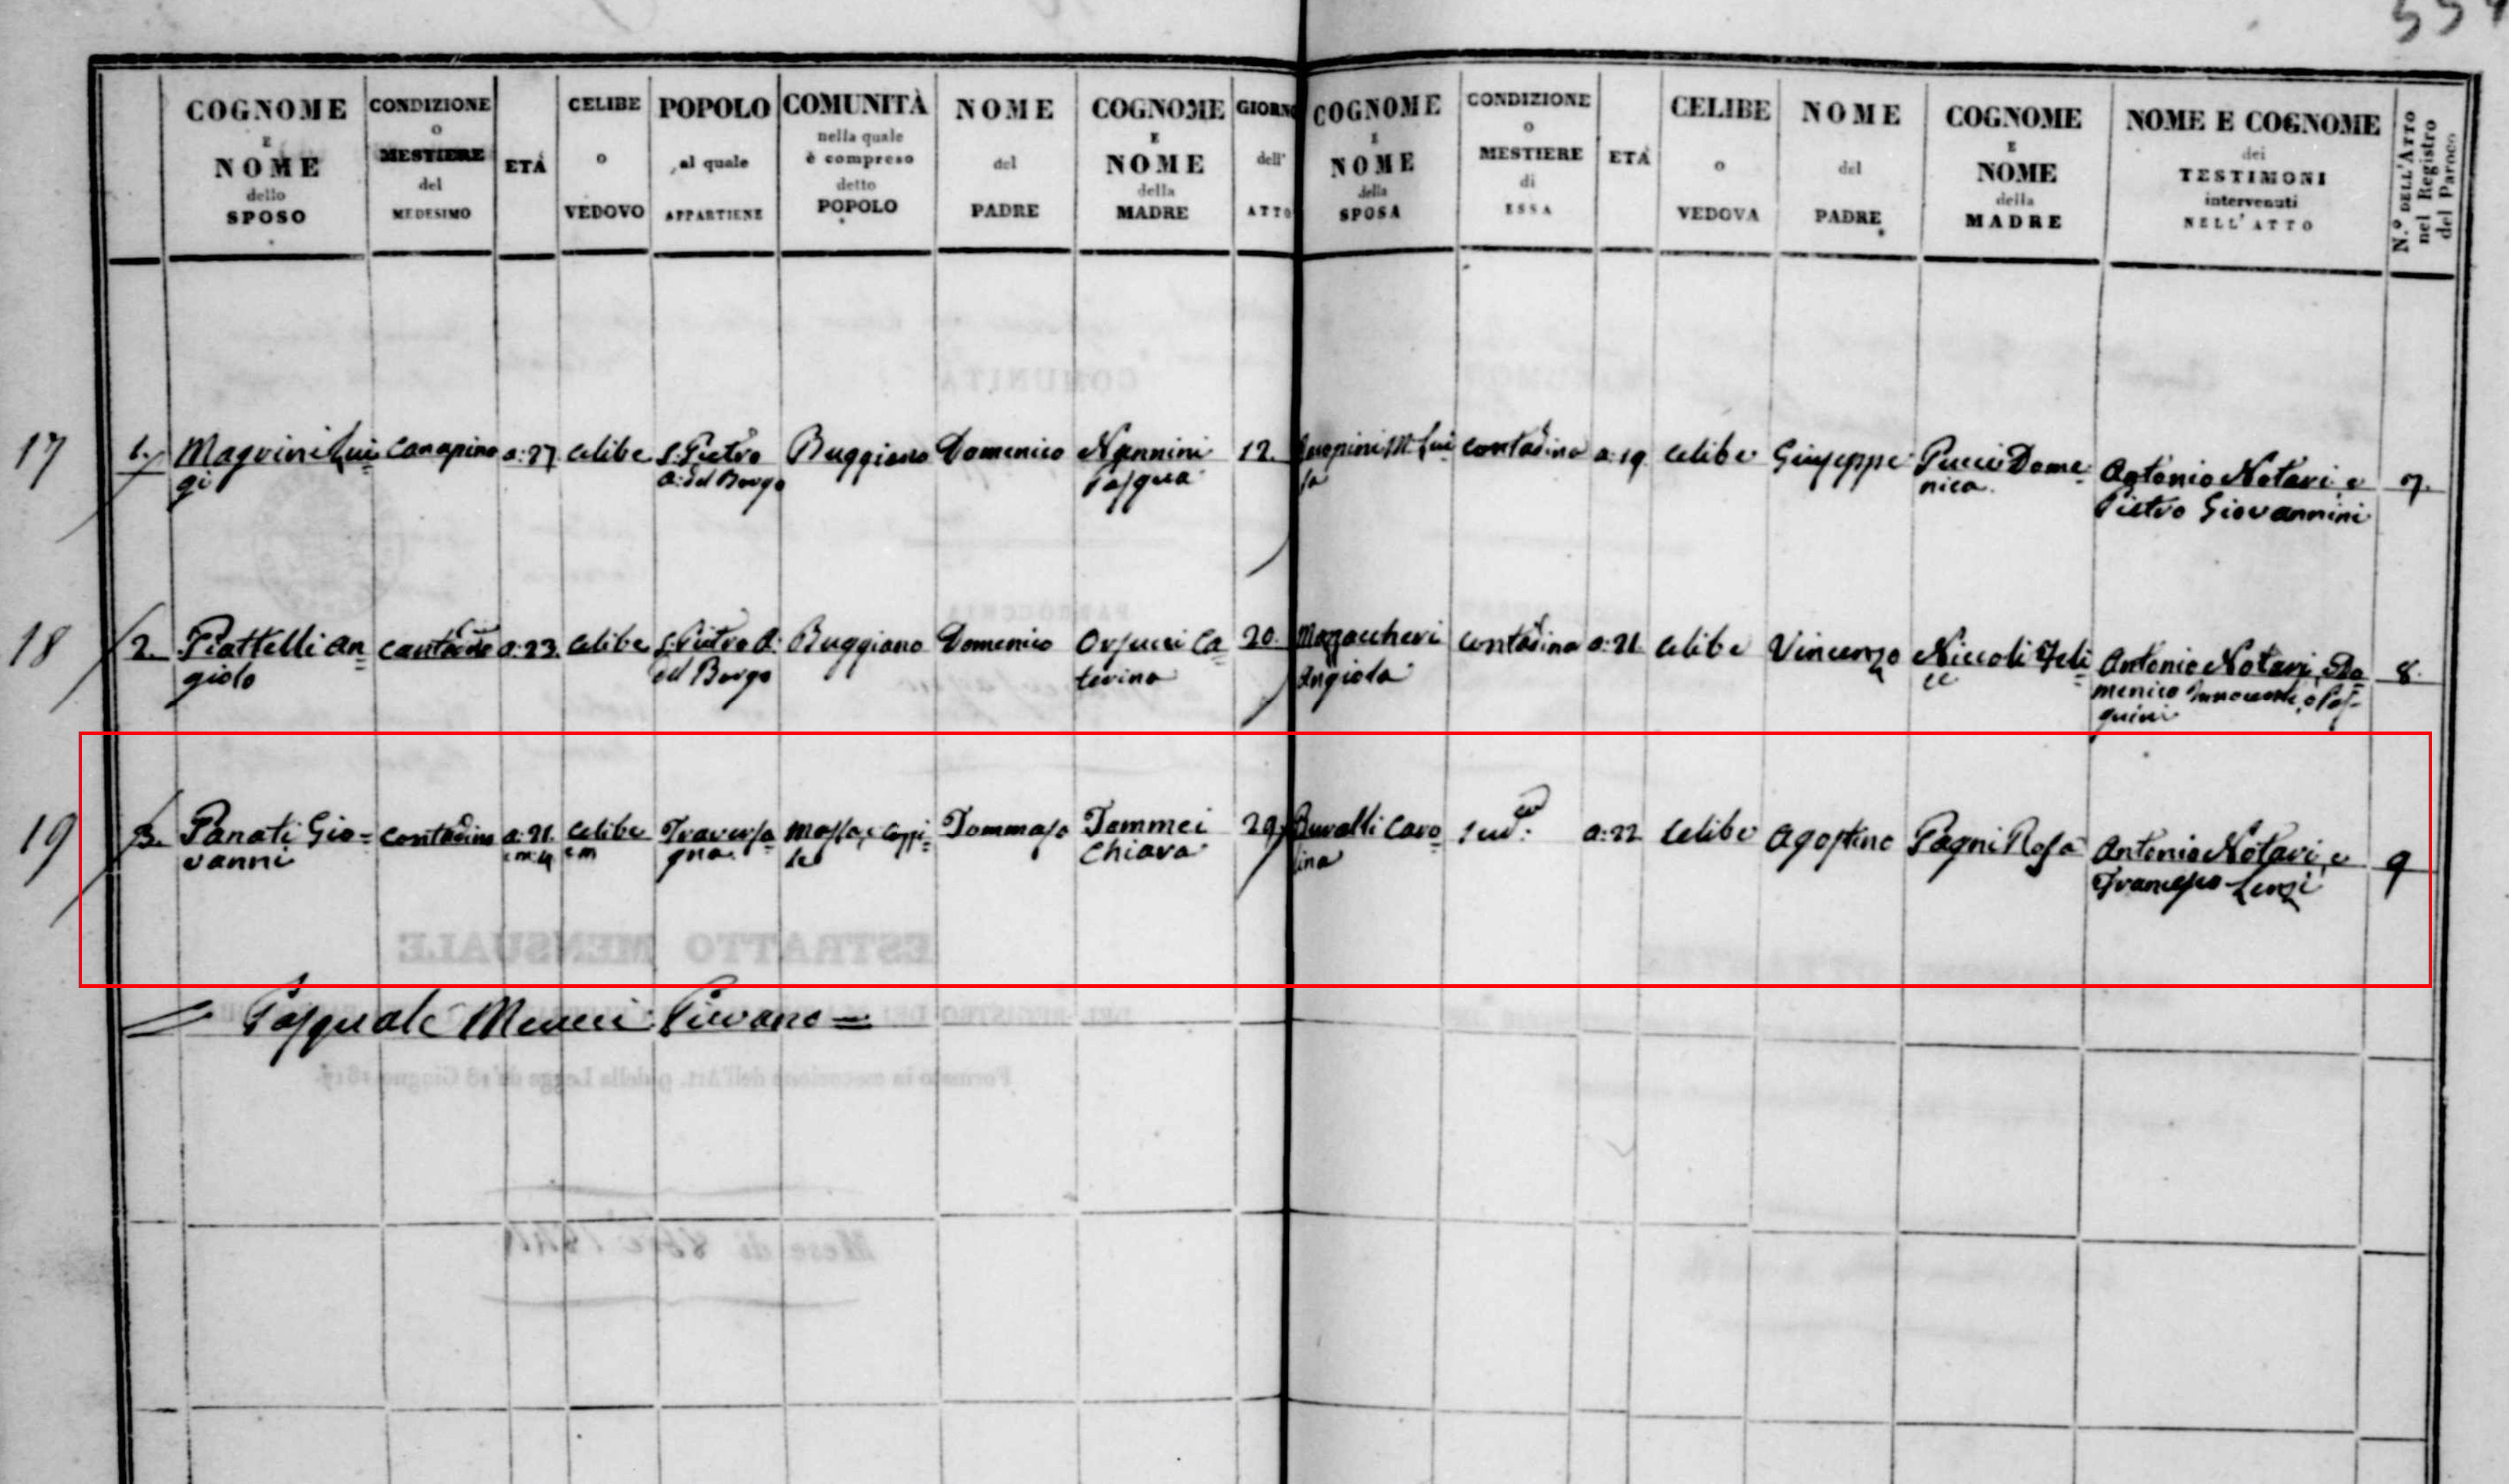 554
COGNOME E NOME dello SPOSO
CONDIZIONE O MESTIERE del MEDESIMO
ETÀ
CELIBE O VEDOVO
POPOLO al quale APPARTIENE
COMUNITÀ nella quale è compreso detto POPOLO
NOME del PADRE
COGNOME E NOME della MADRE
GIORNO dell' ATTO
COGNOME E NOME della SPOSA
CONDIZIONE O MESTIERE di ESSA
ETÀ
CELIBE O VEDOVA
NOME del PADRE
COGNOME E NOME della MADRE
NOME E COGNOME dei TESTIMONI intervenuti NELL' ATTO
N.º DELL'ATTO nel Registro del Paroco
17 1. Magrini Lui= Canapino a: 27 celibe S. Pietro Buggiano Domenico Nannini 12. M. Lui= contadina a: 19 celibe Giuseppe Pucci Dome= Antonio Notari, e 7.
gi a: del Borgo Pasqua sa nica. Pietro Giovannini
18 2. Piattelli An= contadino a: 23. celibe S. Pietro a: Buggiano Domenico Orsucci Ca= 20. Mazzaccheri contadina a: 21 celibe Vincenzo Niccoli Feli= Antonio Notari, Do=
giolo del Borgo terina Angiola ce menico Innocenti, e Pas= 8.
quini
19 3. Panati Gio= contadino a: 21. celibe Traversa= Massa, e Cozzi= Tommaso Tommei 29. Buralli Caro= a: 22 celibe Agostino Pagni Rosa Antonio Notari, e 9
vanni gna. le Chiara lina Francesco Lenzi
= Pasquale Meucci Pievano =
ESTRATTO MENSUALE
Formato in esecuzione dell'Art. 9 della Legge de' 18 Giugno 1817.
COMUNITÀ